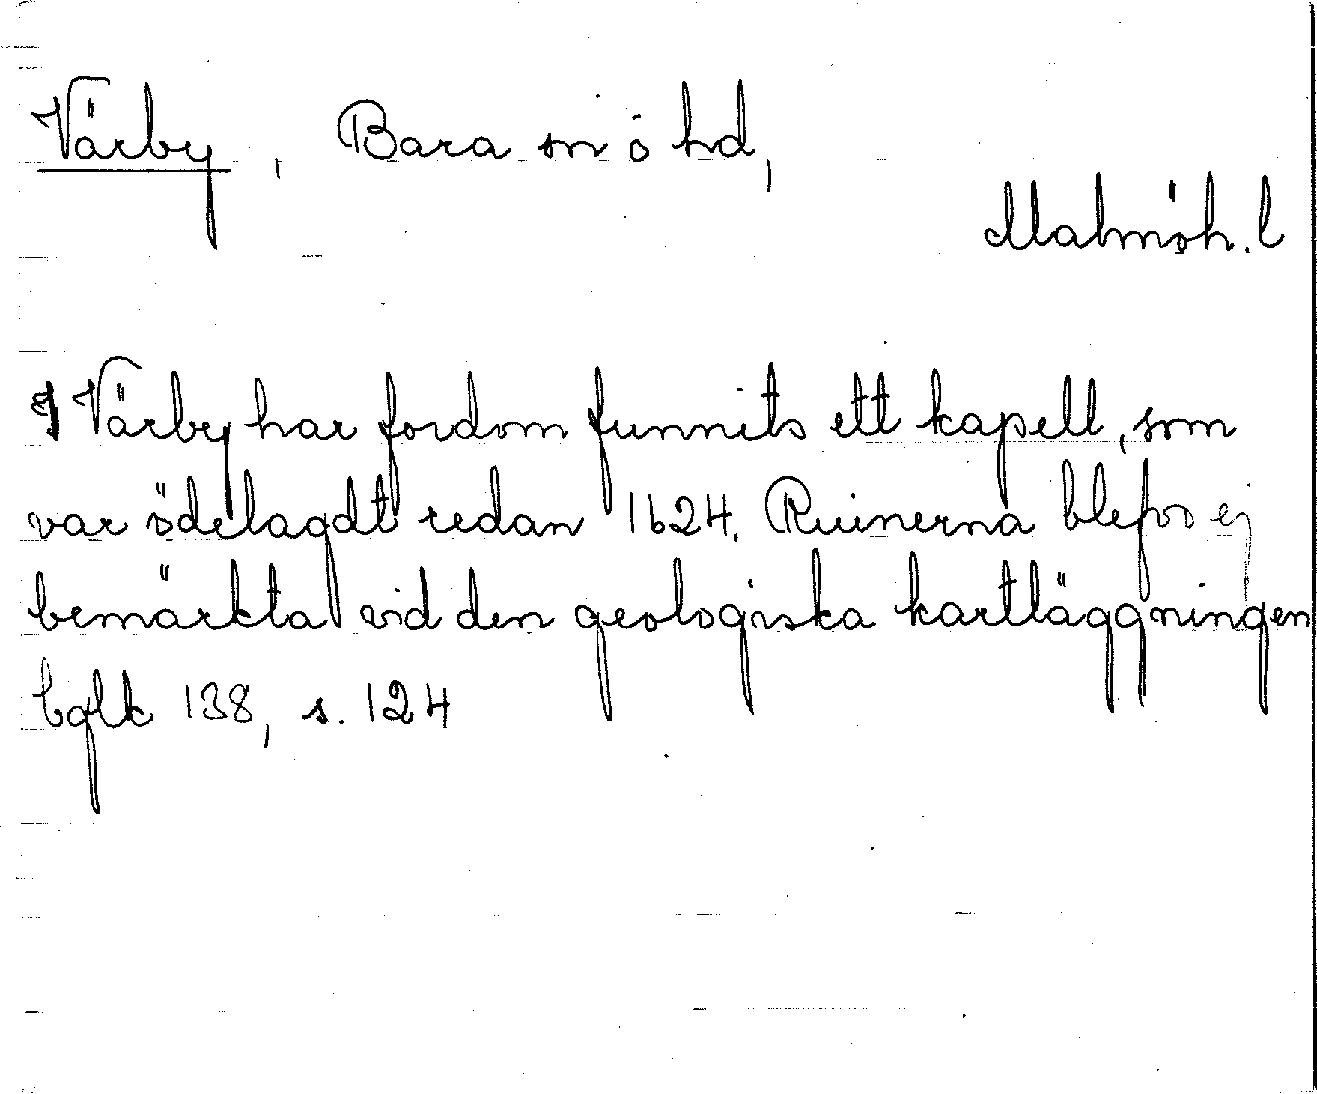 Värby, Bara sn ö hd,
Malmöh. l
I Värby har fordom funnits ett kapell, som
var ödelagdt redan 1624. Ruinerna blefvo ej
bemärkta vid den geologiska kartläggningen
bglk 138, s. 124